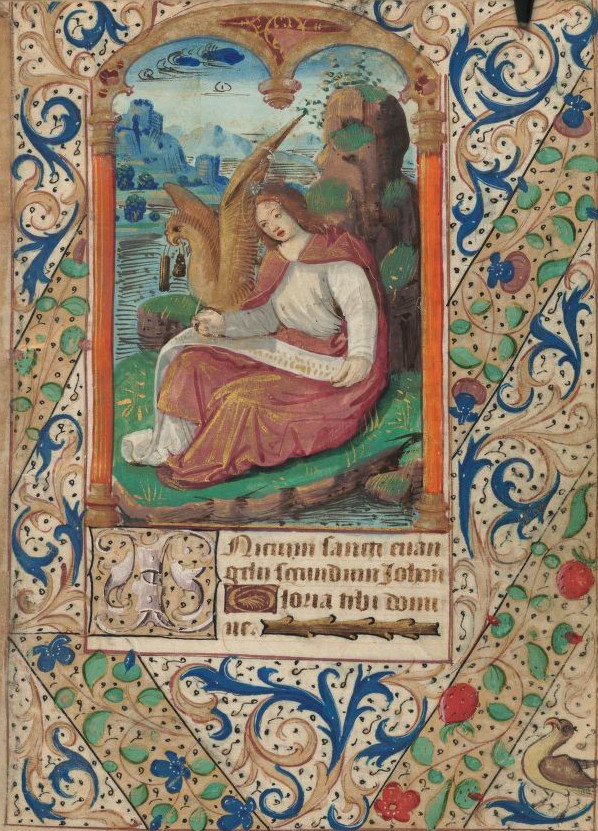 INicium sancti euan
gelii secundum Johen
Gloria tibi domi
ne.